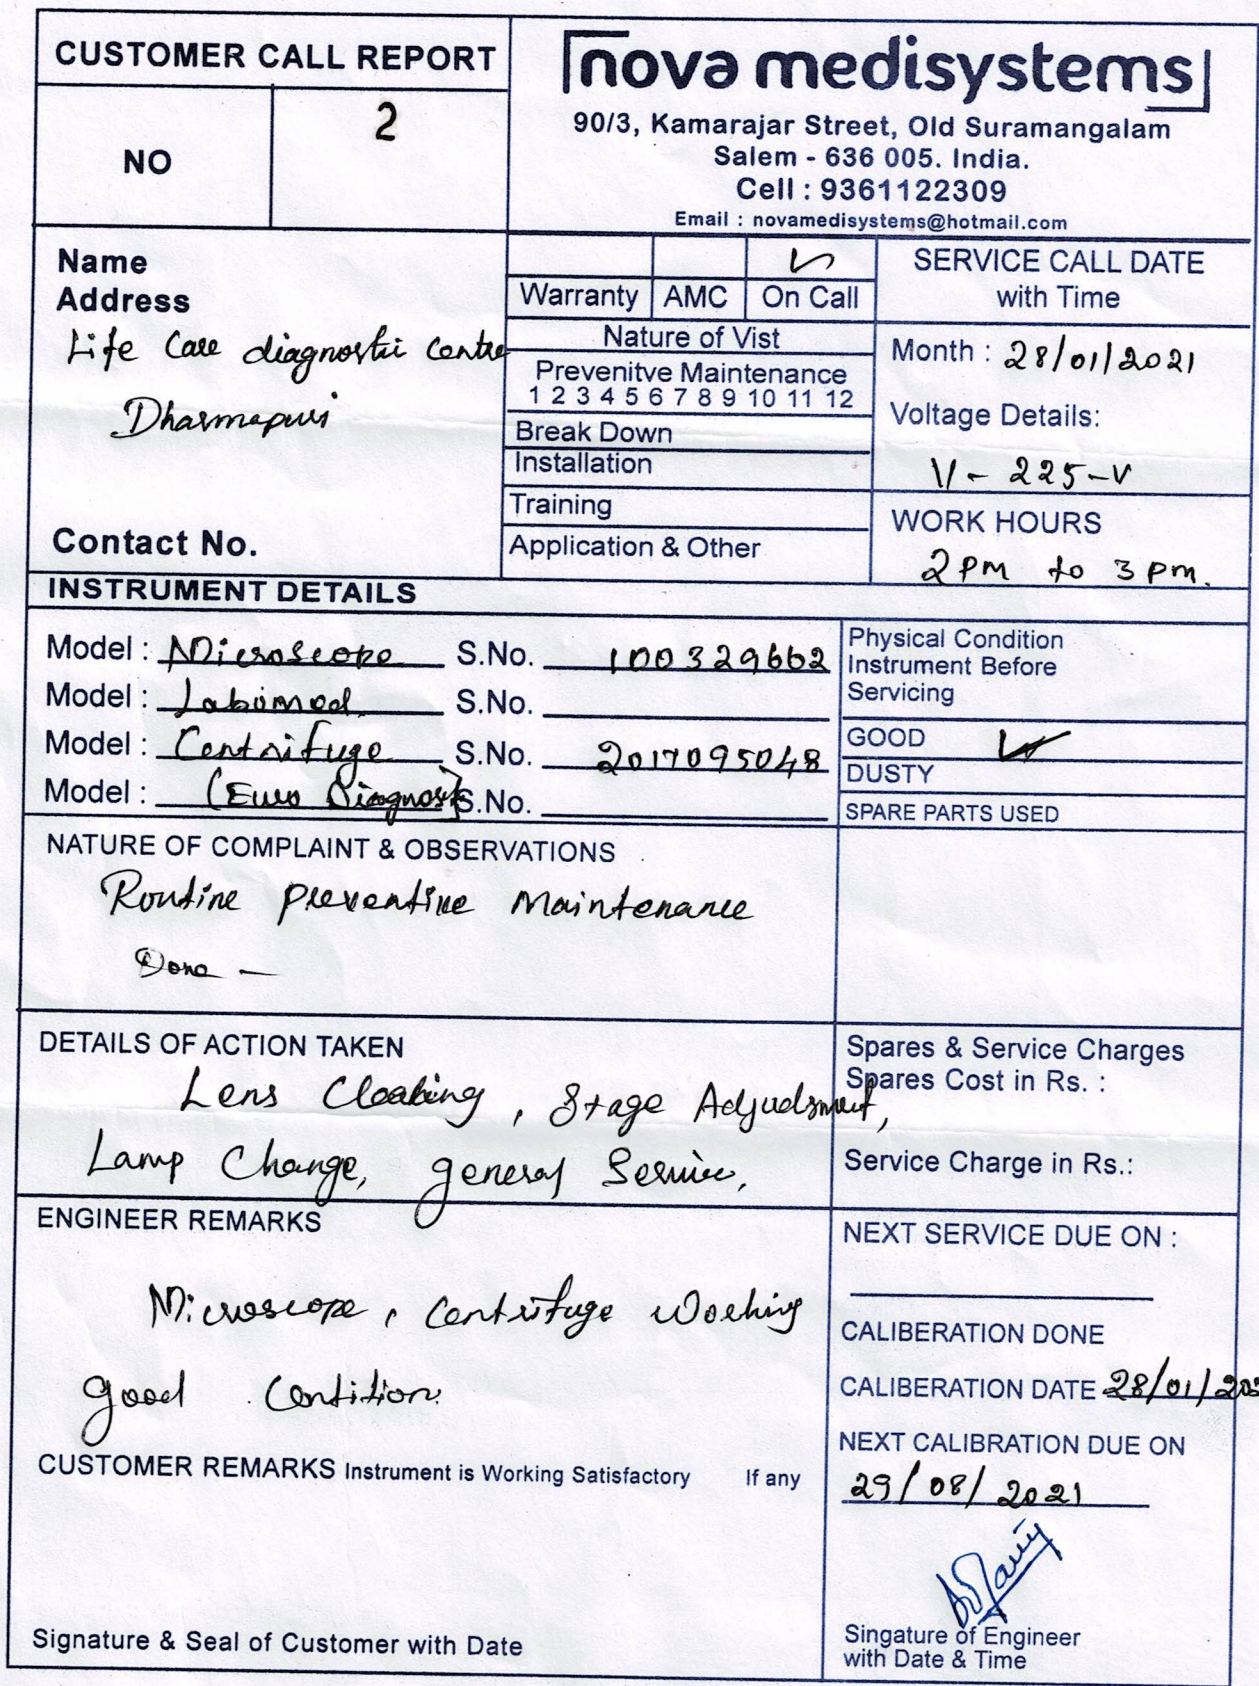 CUSTOMER CALL REPORT
NO
2
nova medisystems
90/3, Kamarajar Street, Old Suramangalam
Salem - 636 005. India.
Cell : 9361122309
Email : novamedisystems@hotmail.com
Name
Address
Life Care diagnostic Centre
Dharmapuri
Contact No.
Warranty AMC On Call
Nature of Vist
Prevenitve Maintenance
1 2 3 4 5 6 7 8 9 10 11 12
Break Down
Installation
Training
Application & Other
SERVICE CALL DATE
with Time
Month : 28/01/2021
Voltage Details:
V - 225-V
WORK HOURS
2 PM to 3 PM.
INSTRUMENT DETAILS
Model : Microscope S.No. 100329662
Model : Labomed S.No.
Model : Centrifuge S.No. 2017095048
Model : (Euro Diagnosis) S.No.
Physical Condition
Instrument Before
Servicing
GOOD
DUSTY
SPARE PARTS USED
NATURE OF COMPLAINT & OBSERVATIONS
Routine Preventive Maintenance
Done -
DETAILS OF ACTION TAKEN
Lens Cleaning, Stage Adjudsment,
Lamp Change, general Service,
Spares & Service Charges
Spares Cost in Rs. :
Service Charge in Rs.:
ENGINEER REMARKS
Microscope, Centrifuge Working
good Contition.
CUSTOMER REMARKS Instrument is Working Satisfactory If any
Signature & Seal of Customer with Date
NEXT SERVICE DUE ON :
CALIBERATION DONE
CALIBERATION DATE 28/01/202
NEXT CALIBRATION DUE ON
29/08/2021
Singature of Engineer
with Date & Time